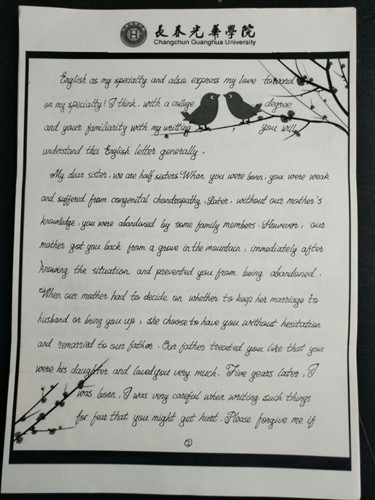 長春光華學院
Changchun Guanghua University
English as my specialty and also express my love toward
on my specialty! I think, with a college degree
and your familiarity with my writting, you will
understand this English letter generally.
My dear sister, we are half sisters. When you were born, you were weak
and suffered from congenital chondropathy. Later, without our mother's
knowledge, you were abandoned by some family members. However, our
mother got you back from a grove in the mountain, immediately after
knowing the situation and prevented you from being abandoned.
When our mother had to decide on whether to keep her marriage to
husband or bring you up, she choose to have you without hesitation
and remarried to our father. Our father treated you like that you
were his daughter and loved you very much. Five years later, I
was born. I was very careful when writing such things
for fear that you might get hurt. Please forgive me if
②